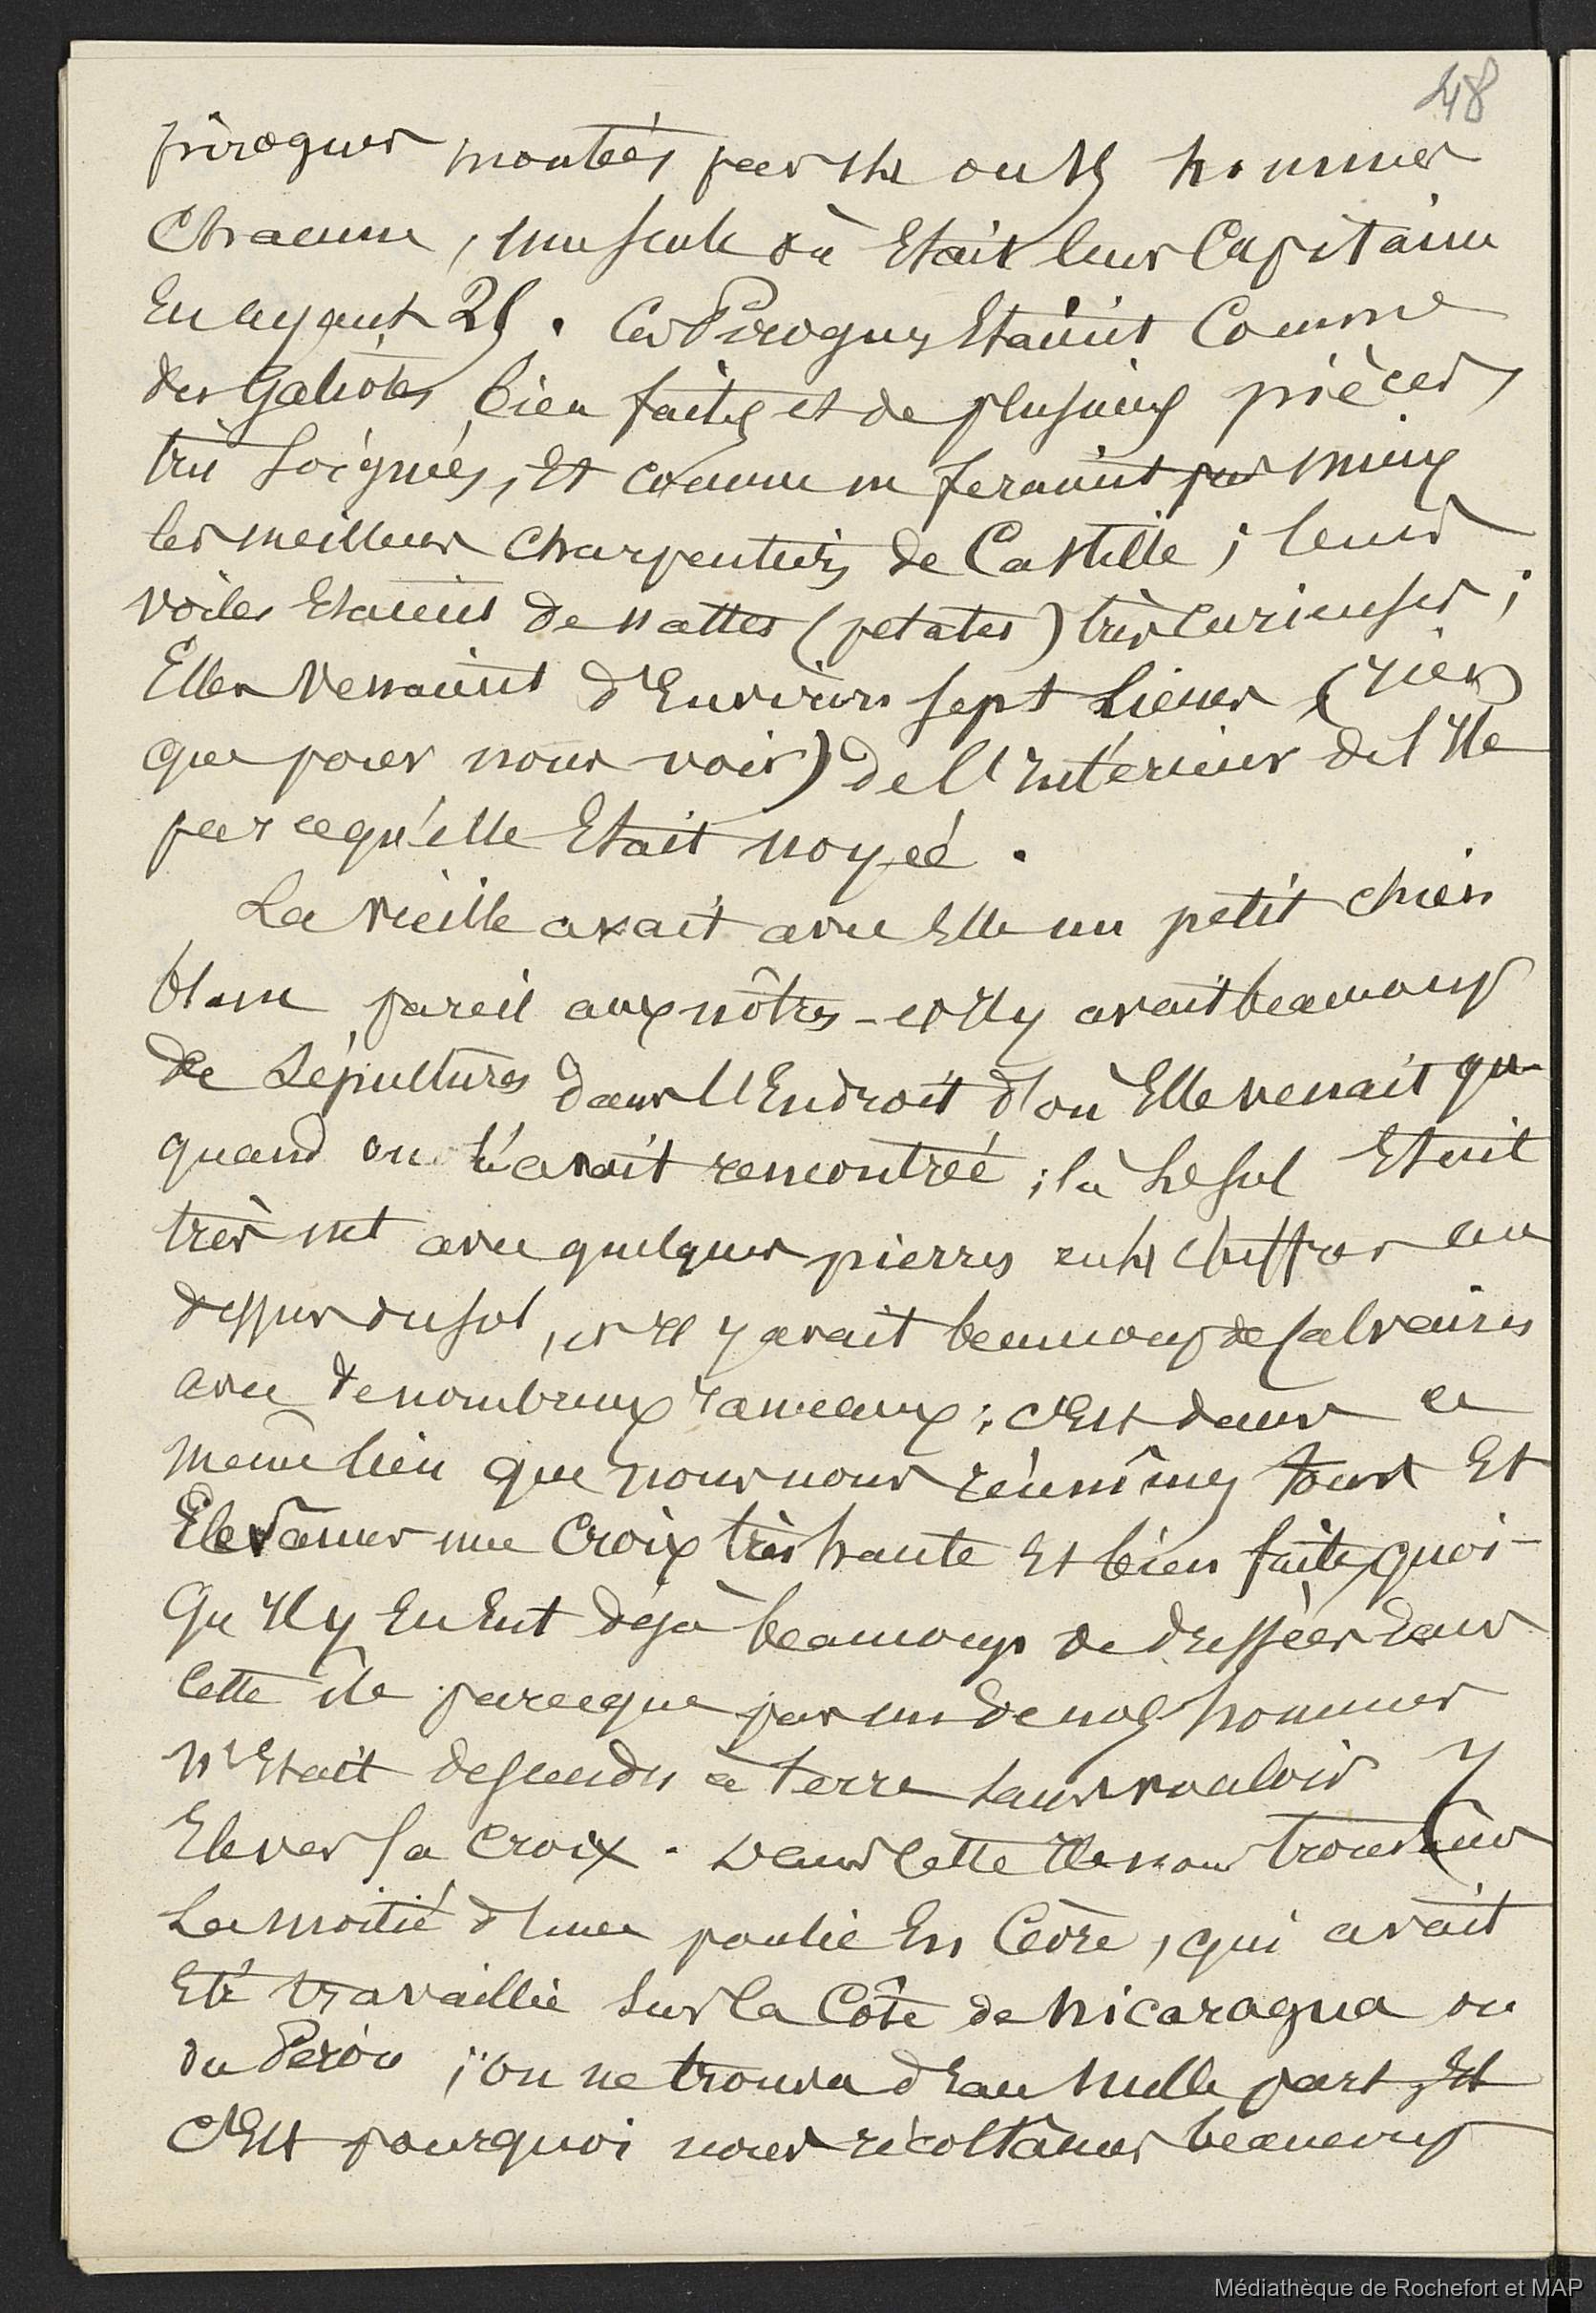 48
pirogues montées par 14 ou 15 hommes
Chacune, une seule où Etait leur Capitaine
En ayant 25. Ces Pirogues Etaient Comme
des Galiotes bien faites et de plusieurs pièces,
très soignées, Et comme ne feraient pas mieux
les meilleurs Charpentiers de Castille ; leurs
voiles Etaient de nattes (petates) très curieuses ;
Elles Venaient d'Environ sept Lieues (rien
que pour nous voir) de l'Intérieur de l'Ile
parcequ'elle Etait noyée.
La vieille avait avec Elle un petit chien
blanc pareil aux nôtres - et Il y avait beaucoup
de Sépultures dans l'Endroit d'où Elle venait qu
quand on l'avait rencontrée ; là le sol Etait
très net avec quelques pierres au
dessus du sol, et Il y avait beaucoup de Calvaires
avec de nombreux rameaux ; c'Est dans ce
même lieu que nous nous réunîmes tous Et
Elevâmes une Croix très haute Et bien faite, quoi-
qu'Il y En Eut déjà beaucoup de dressées dans
cette île parceque pas un de nos hommes
n'Etait descendu à terre sans vouloir y
Elever sa croix. Dans cette Ile nous trouvâmes
La moitié d'une poulie En Cèdre, qui avait
Eté travaillée sur la Côte de Nicaragua ou
du Pérou ; on ne trouva d'Eau nulle part, Et
C'Est pourquoi nous récoltâmes beaucoup
Médiathèque de Rochefort et MAP